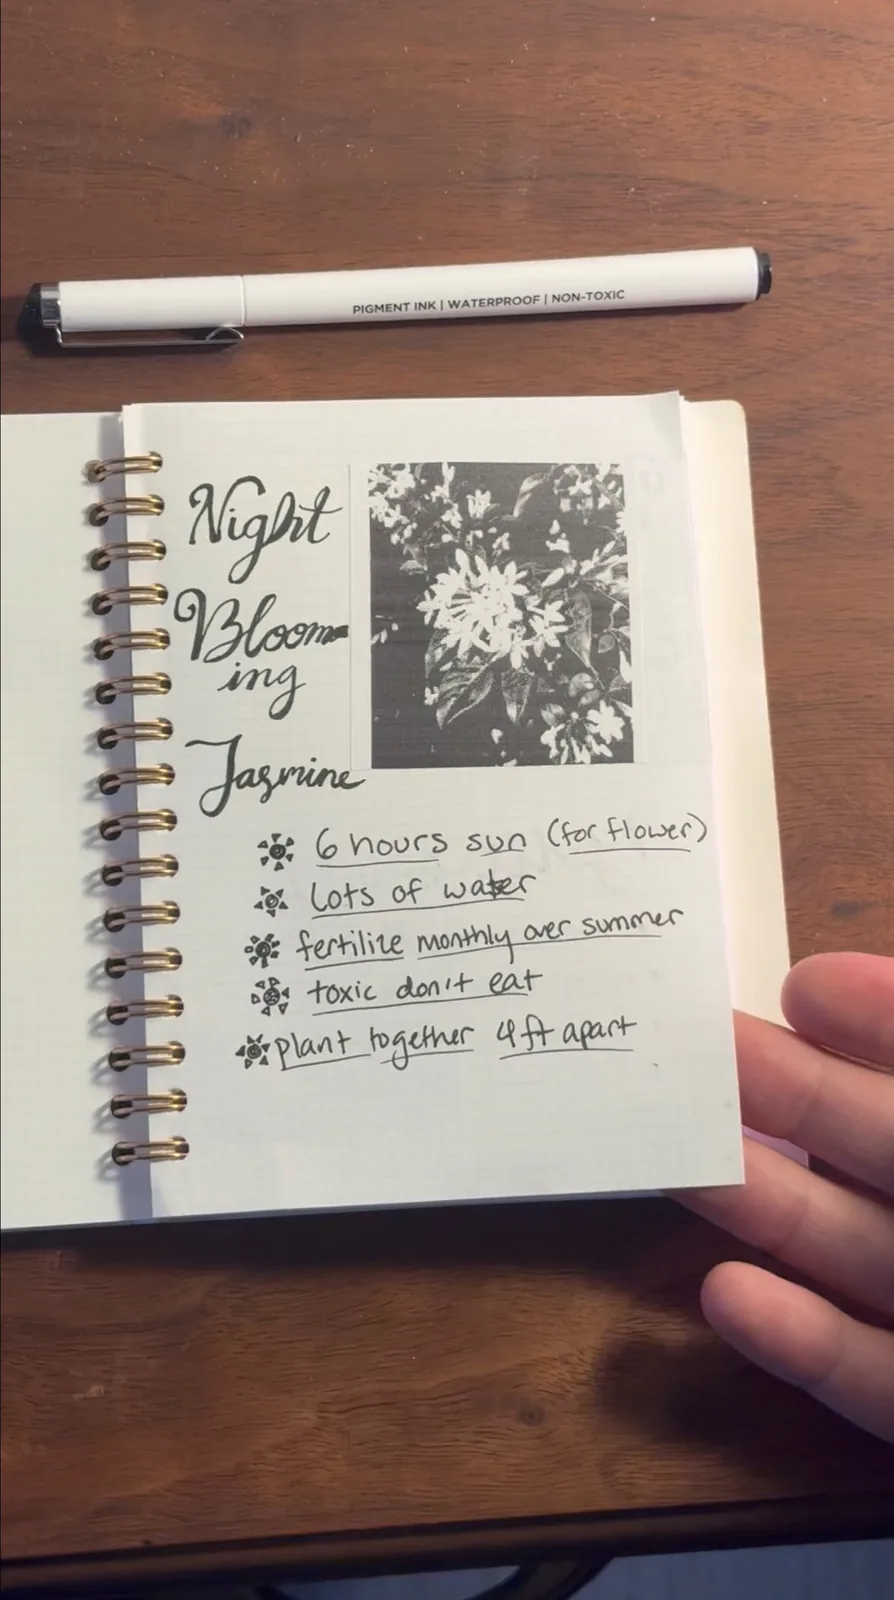 PIGMENT INK | WATERPROOF | NON-TOXIC
Night
Bloom-
ing
Jasmine
6 hours sun (for flower)
lots of water
fertilize monthly over summer
toxic don't eat
plant together 4ft apart